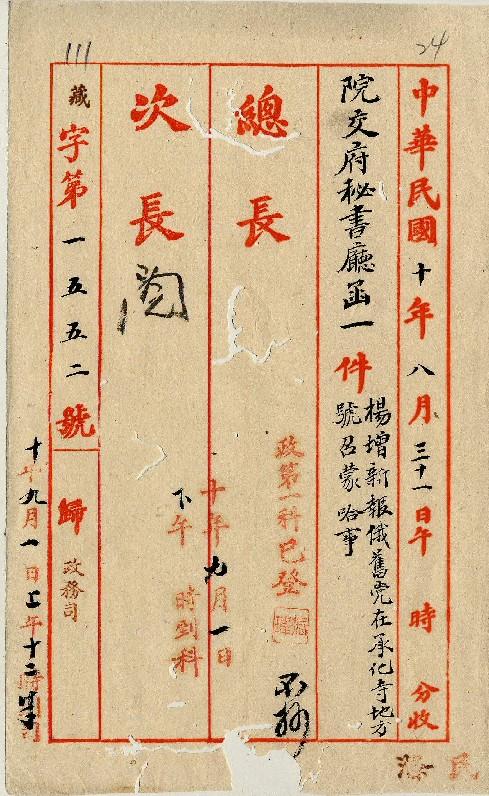 111
24
中華民國十年八月三十一日午 時 分收
院交府秘書廳函一件
楊增新報俄舊党在承化寺地方
號召蒙哈事
總長
政第一科已登
十年九月一日
下午 時到科
次長
閱
藏字第一五五二號
歸政務司
十年九月一日